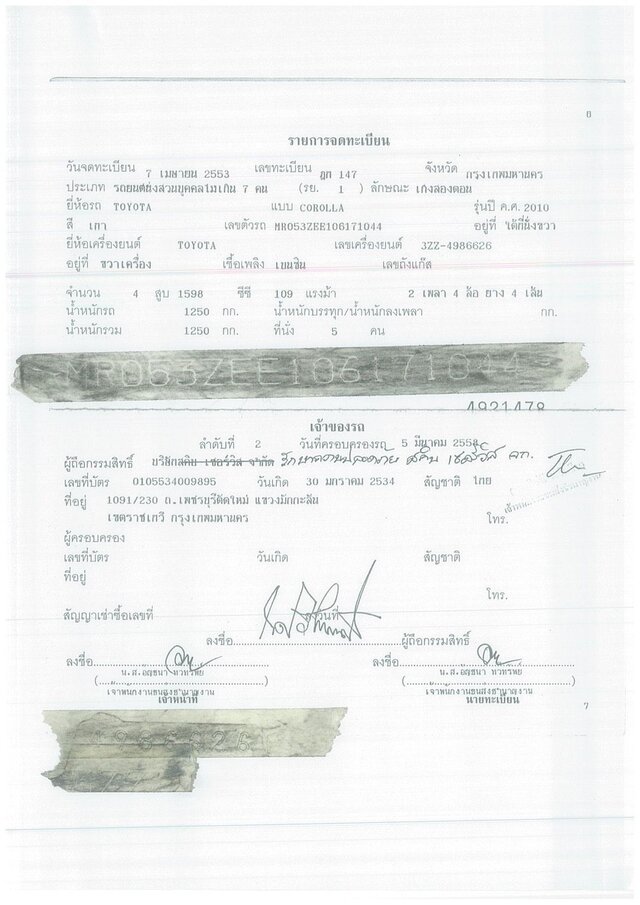 8
รายการจดทะเบียน
วันจดทะเบียน 7 เมษายน 2553 เลขทะเบียน ฎก 147 จังหวัด กรุงเทพมหานคร
ประเภท รถยนต์นั่งส่วนบุคคลไม่เกิน 7 คน (รย. 1 ) ลักษณะ เก๋งสองตอน
ยี่ห้อรถ TOYOTA แบบ COROLLA รุ่นปี ค.ศ. 2010
สี เทา เลขตัวรถ MR053ZEE106171044 อยู่ที่ ใต้ที่นั่งขวา
ยี่ห้อเครื่องยนต์ TOYOTA เลขเครื่องยนต์ 3ZZ-4986626
อยู่ที่ ขวาเครื่อง เชื้อเพลิง เบนซิน เลขถังแก๊ส
จำนวน 4 สูบ 1598 ซีซี 109 แรงม้า 2 เพลา 4 ล้อ ยาง 4 เส้น
น้ำหนักรถ 1250 กก. น้ำหนักบรรทุก/น้ำหนักลงเพลา กก.
น้ำหนักรวม 1250 กก. ที่นั่ง 5 คน
MR053ZEE106171044
4921478
เจ้าของรถ
ลำดับที่ 2 วันที่ครอบครองรถ 5 มีนาคม 255
ผู้ถือกรรมสิทธิ์ บริษัทสคิบ เซอร์วิส จำกัด รักษาความปลอดภัย สคิบ เซอร์วิส จก.
เลขที่บัตร 0105534009895 วันเกิด 30 มกราคม 2534 สัญชาติ ไทย
ที่อยู่ 1091/230 ถ.เพชรบุรีตัดใหม่ แขวงมักกะสัน
เขตราชเทวี กรุงเทพมหานคร โทร.
ผู้ครอบครอง
เลขที่บัตร วันเกิด สัญชาติ
ที่อยู่
โทร.
สัญญาเช่าซื้อเลขที่ ลงวันที่
ลงชื่อ ผู้ถือกรรมสิทธิ์
ลงชื่อ ลงชื่อ
น.ส.อัญชนา ทวีทรัพย์ น.ส.อัญชนา ทวีทรัพย์
เจ้าพนักงานขนส่งชำนาญงาน เจ้าพนักงานขนส่งชำนาญงาน
เจ้าหน้าที่ นายทะเบียน
7
4986626